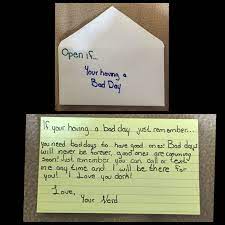 Open if...
Your having a
Bad Day
If your having a bad day just remember...
you need bad days to have good ones! Bad days
will never be forever, good ones are comming
soon! Just remember you can call or text
me any time and I will be there for
you! I Love you dork!
Love,
Your Nerd